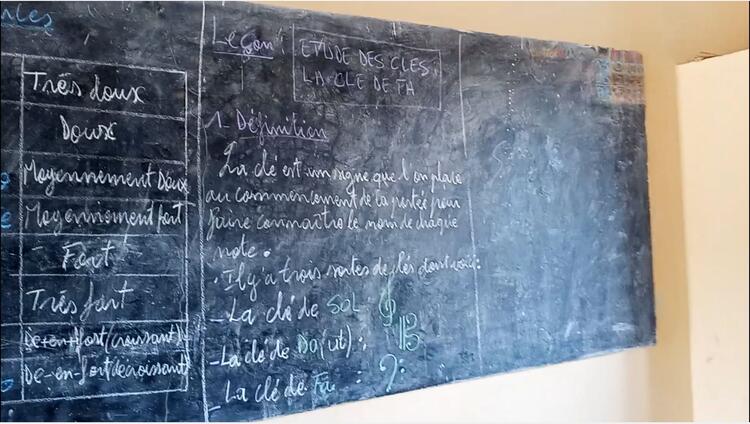 Très doux
Doux
Moyennement Doux
Moyennement fort
Fort
Très fort
De-en-fort (croissant)
De-en-fort (decroissant)
Leçon : ETUDE DES CLES :
LA CLE DE FA
1. Définition
La clé est un signe que l'on place
au commencement de la portée pour
faire connaître le nom de chaque
note.
. Il y a trois sortes de clés dont voici :
- La clé de SOL
- La clé de Do (ut) :
- La clé de Fa :